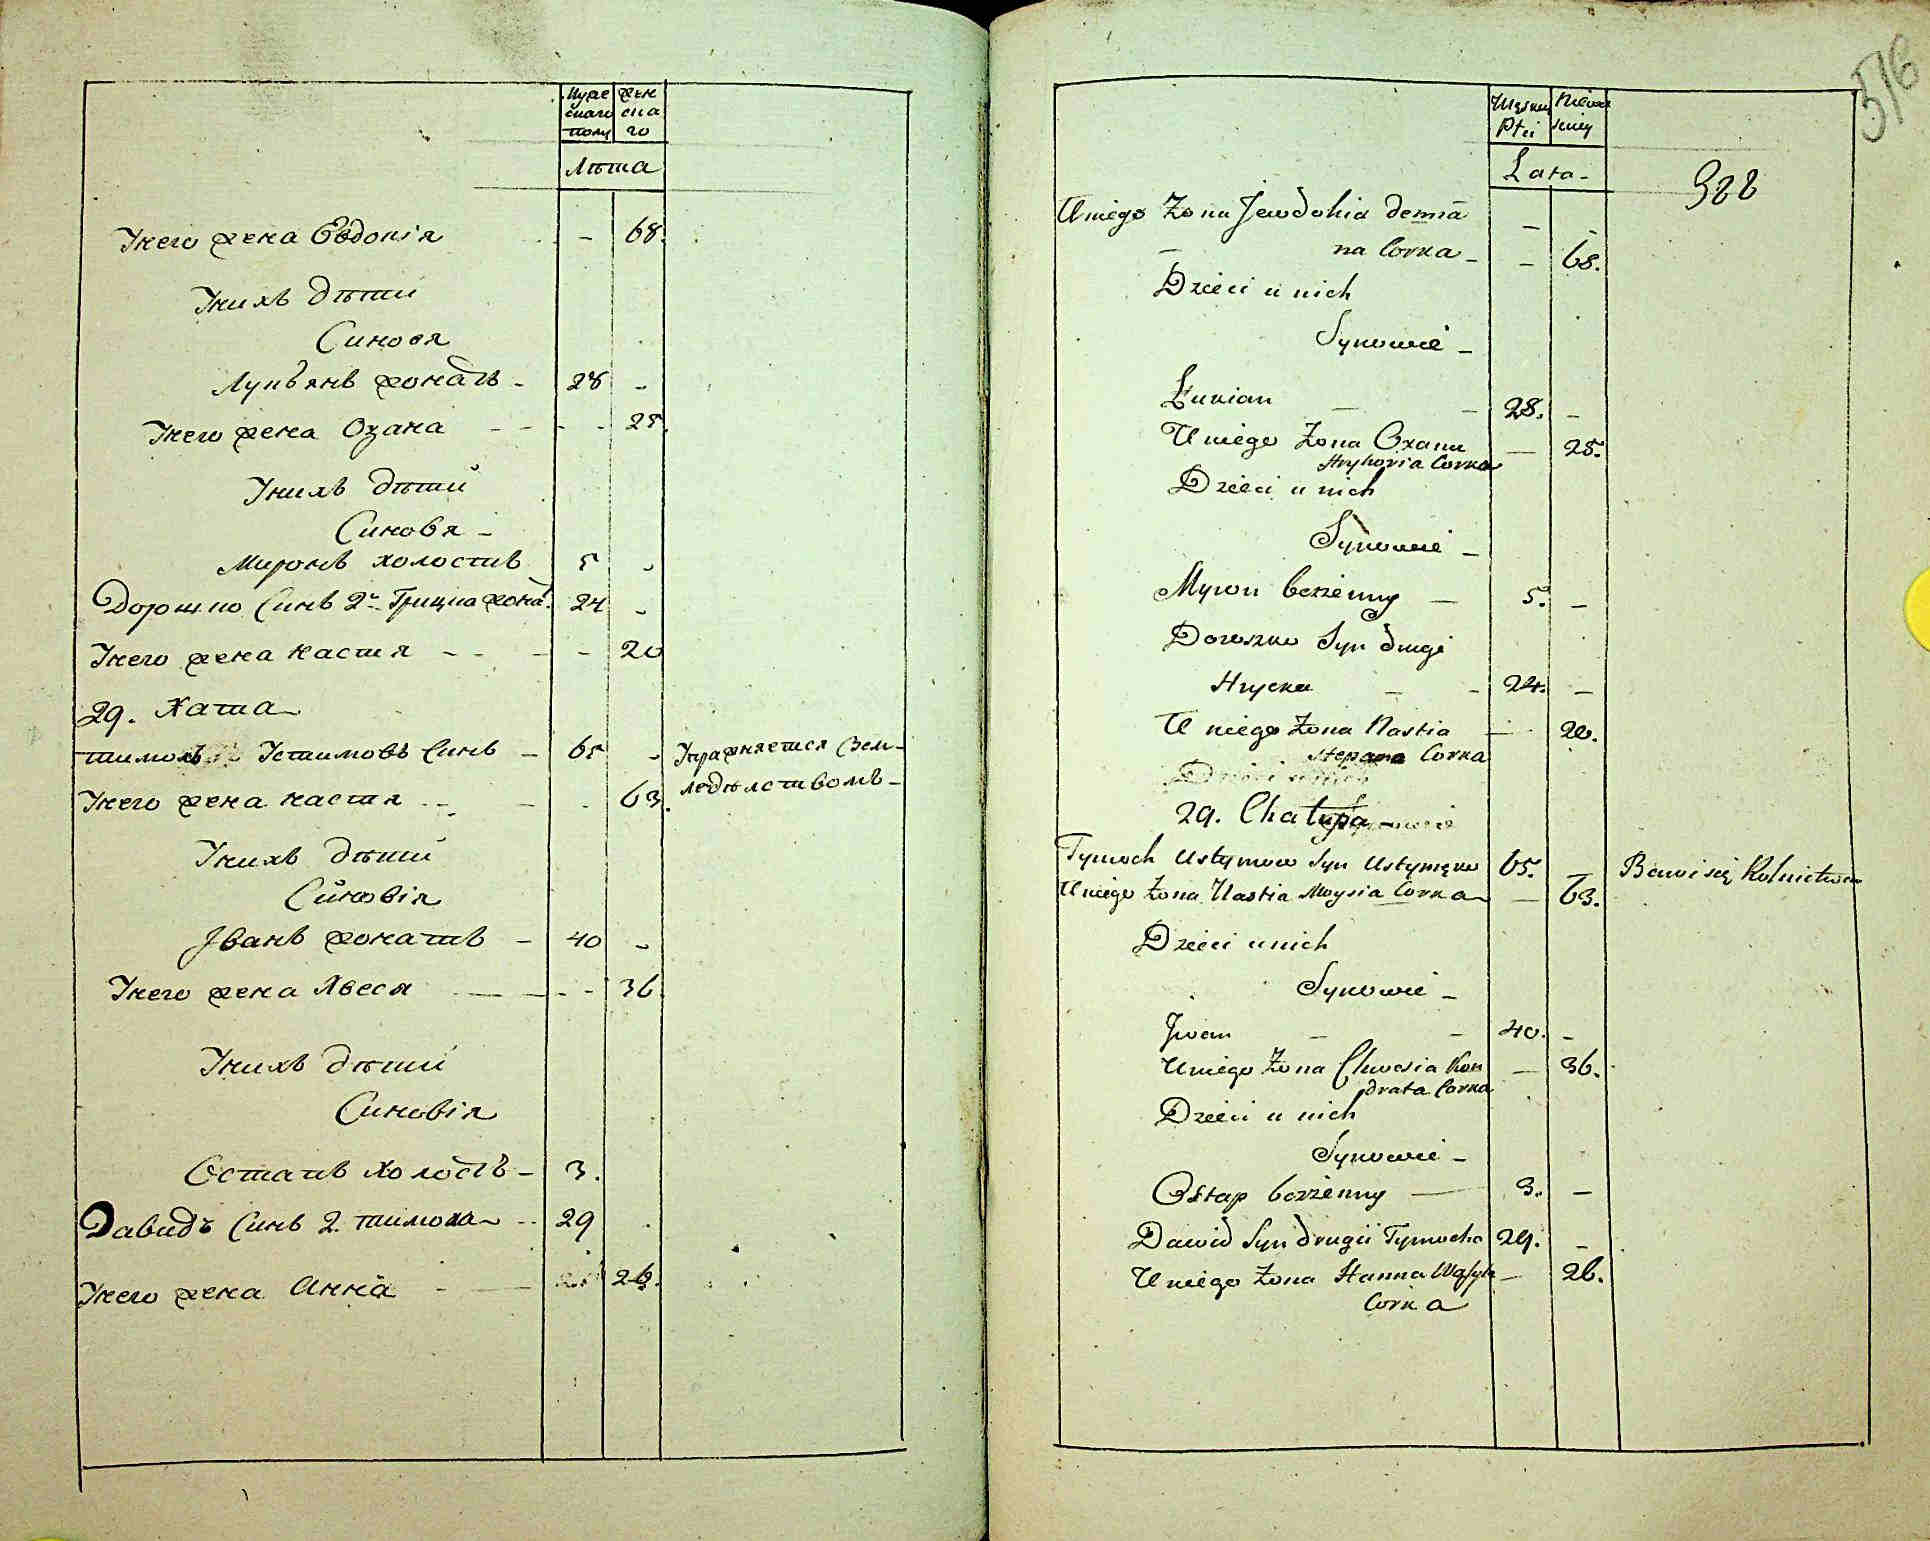 Муже женскаго
скаго
полу
Лѣта
Унего жена Евдокія - 68.
Унихъ дѣти
Синовя
Лукъянъ жонатъ - 28 -
Унего жена Оxана - - - - 25.
Унихъ дѣти
Синовя -
Миронъ холостив 5 -
Дорошко Синъ 2й Грицка жона. 24 -
Унего жена настя - - - - 20
29. Хата
тимохъ Устимовъ Синъ - 65 - Упражняется Зем-
ледѣлствомъ -
Унего жена настя - - - 63.
Унихъ дѣти
Синовія
Іванъ жонатъ - 40 -
Унего жена Хвеся - - - - 36
Унихъ дѣти
Синовія
Остапъ холостъ - 3.
Давидъ Синъ 2. тимоха - 29
Унего жена Анна - - 26.
516
Męskiey Niewieskiey
Płci
Lata -
388
U niego Żona Jewdokia demia
na Corka - - 68.
Dzieci u nich
Synowie -
Łukian - - 28. -
U niego Żona Oxana — 25.
Hryhoria Corka
Dzieci u nich
Synowie -
Myron bezżenny — 5. -
Doroszko Syn drugi
Hrycka - - 24. -
U niego Żona Nastia — 20.
Stepana Corka
Dzieci u nich
29. Chałupa -
Tymoch Ustymow Syn Ustymęko 65. - Bawi się Rolnictwem
U niego Żona Nastia Moysia Corka — 63.
Dzieci u nich
Synowie -
Jwan - - 40. -
U niego Żona Chwesia Kon — 36.
drata Corka
Dzieci u nich
Synowie -
Ostap bezżenny — 3. -
Dawid Syn drugii Tymocha 29. -
U niego Żona Hanna Wasyla — 26.
Corka